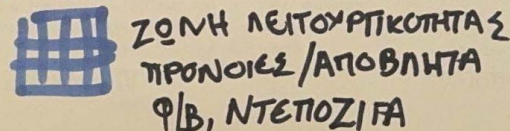 ΖΩΝΗ ΛΕΙΤΟΥΡΓΙΚΟΤΗΤΑΣ
ΠΡΟΝΟΙΕΣ/ΑΠΟΒΛΗΤΑ
Φ/Β, ΝΤΕΠΟΖΙΤΑ